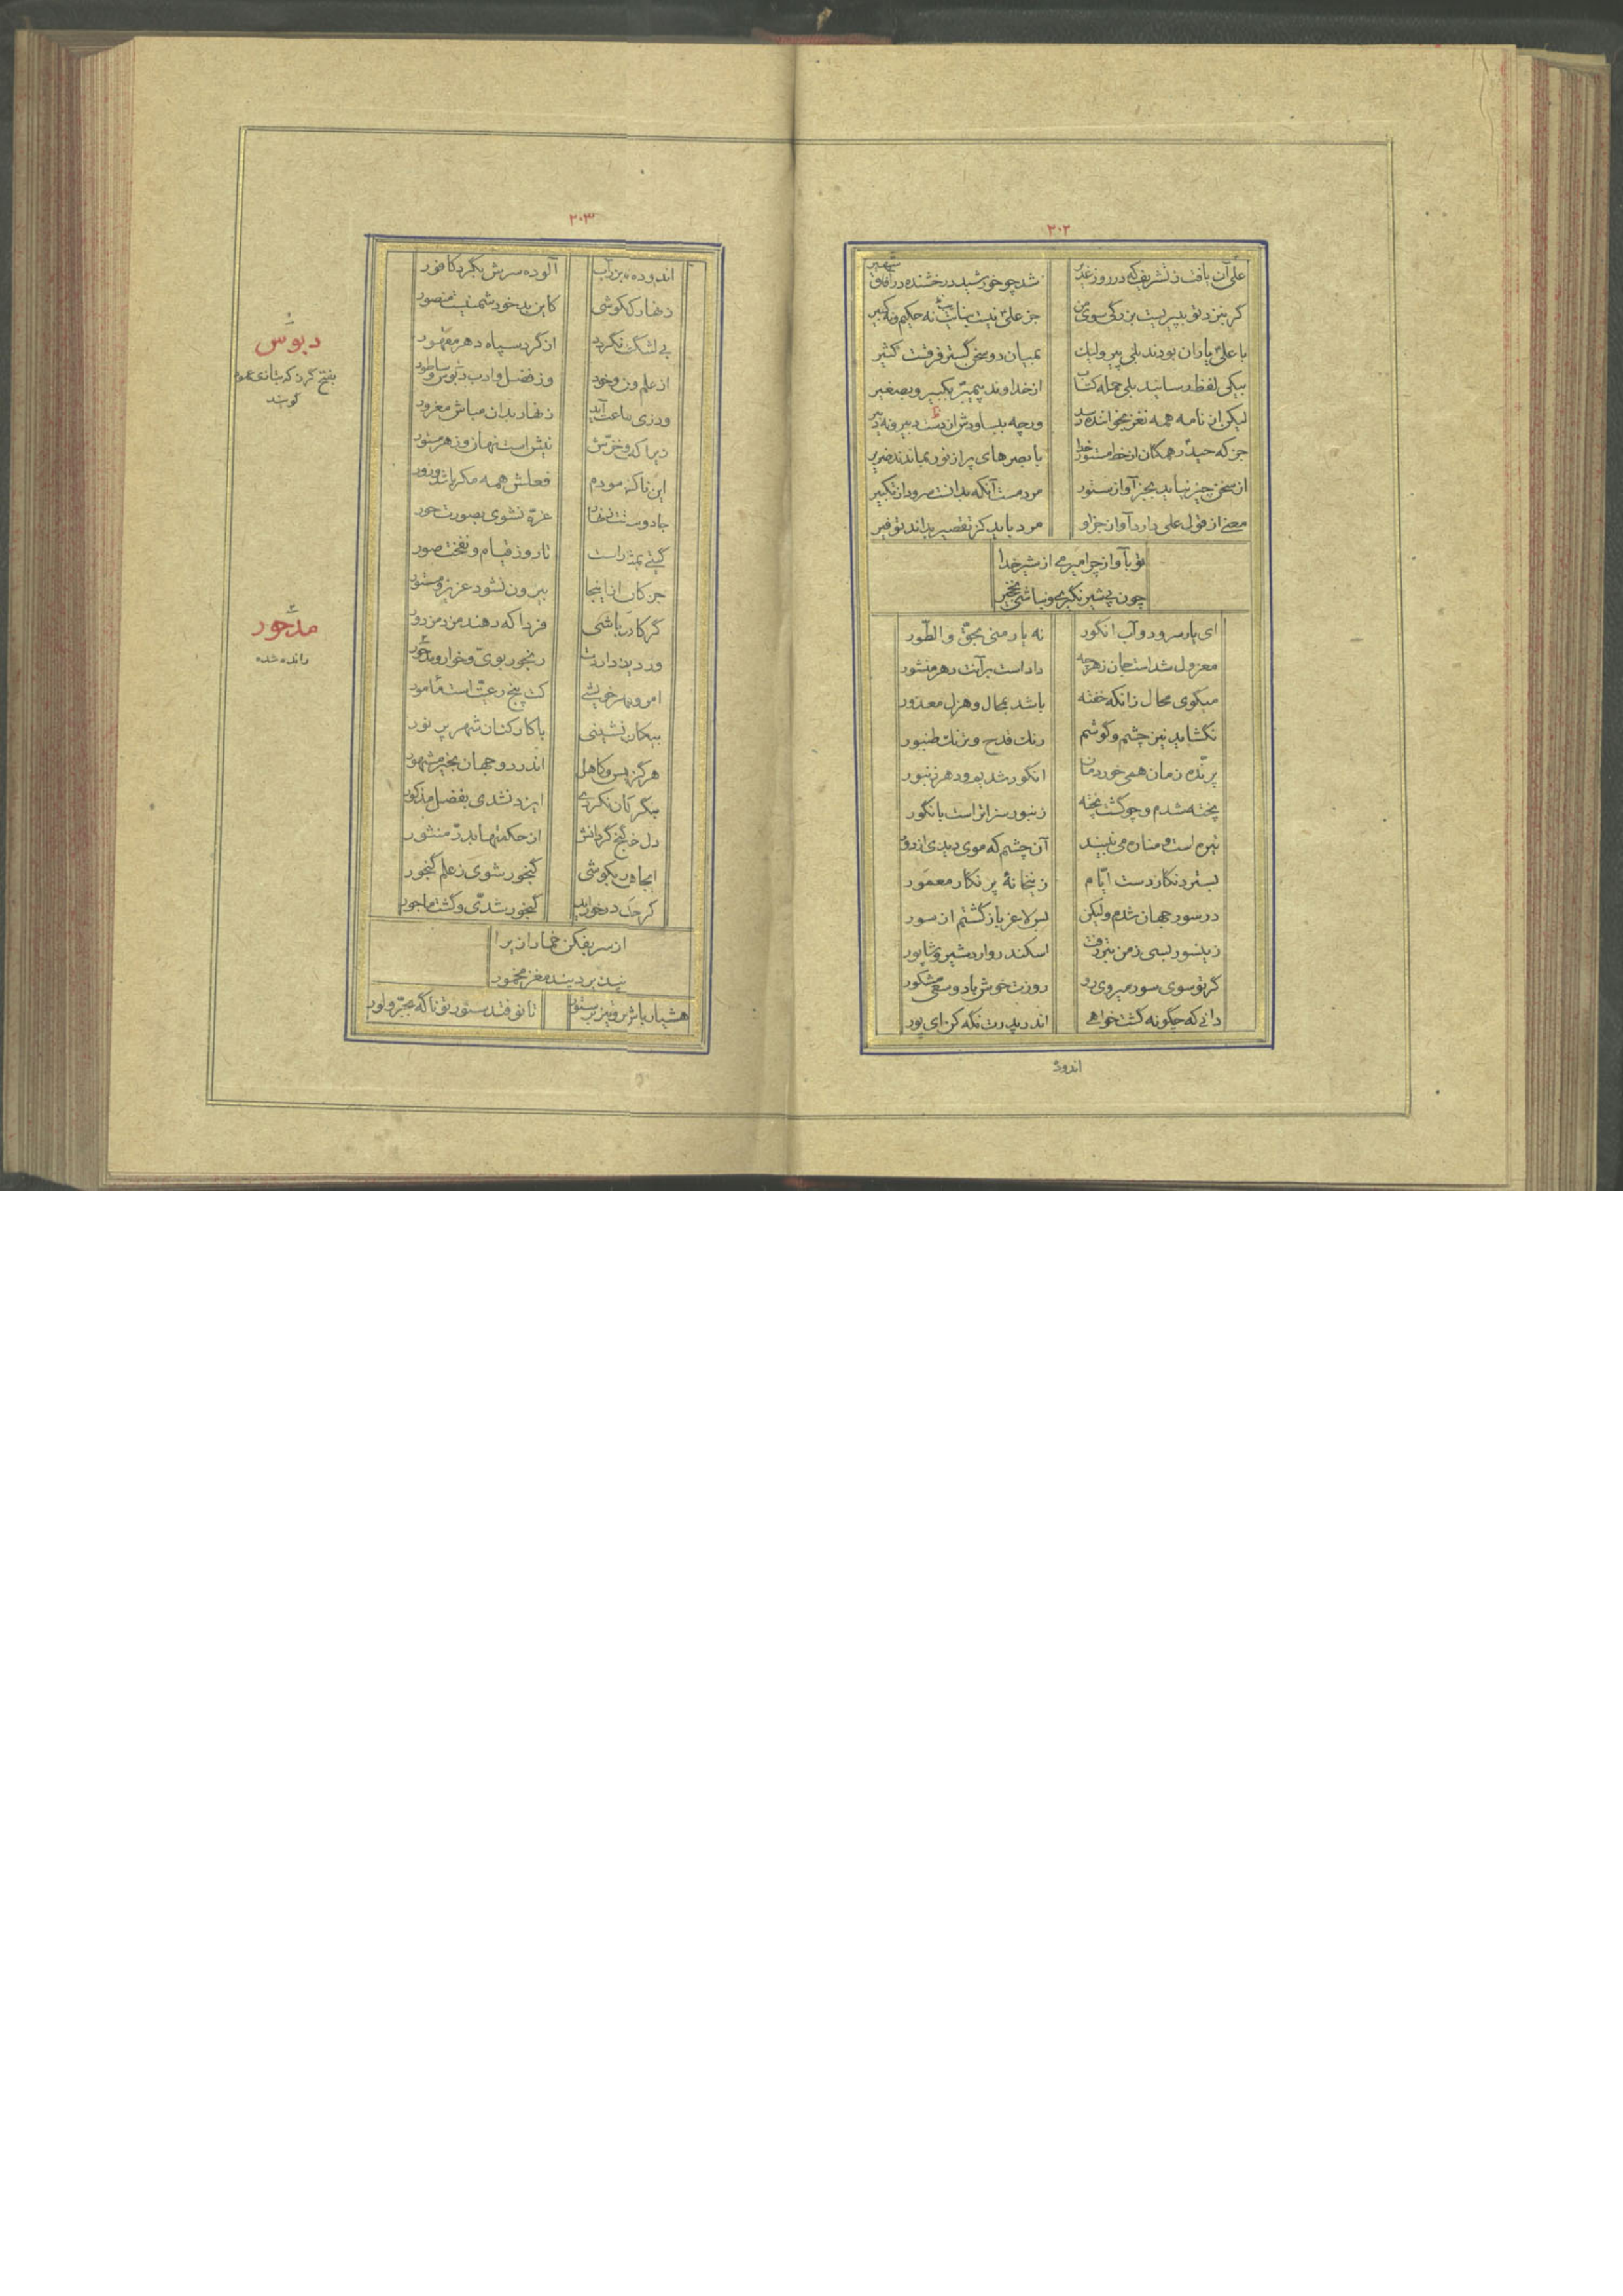 ۲۰۲
علی آن یافت ز تشریف که در روز غدیر شد چو خورشید درخشنده در آفاق شهیر
گر بنزد تو بپیریست بزرگی سوی من جز علی نیست بنایت نه حکیم و نه کبیر
با علی یاران بودند بلی پیر ولیک بمیان دو سخن گستر فرقست کثیر
بیکی لفظ رسانید بلی جمله کتاب از خداوند پیمبر بکبیر و بصغیر
لیکن از نامه همه نغز بخواننده رسد ورچه بپساودش از دست دبیر و نه دبیر
جز که حیدر همگان از خط مسطور خدا با بصرهای پر از نور بماندند ضریر
از سخن چیز نیابد بجز آواز ستور مردمست آنکه بدانست سرود از تکبیر
معنی از قول علی دارد آواز جز او مرد باید کز تقصیر بداند توفیر
تو بآواز چرا میرمی از شیر خدا
چون پی شیر نگیری و نباشی نخجیر
ای یار سرود و آب انگور نه یار منی بحق والطور
معزول شد است جان ز هرچه داداست بر آنت دهر منشور
میگوی محال زانکه خفته باشد بمحال و هزل معذور
نگشاید نیز چشم و گوشم رنگ قدح و ترنگ طنبور
پرنده زمان همی خوردمان انگور شدیم و دهر زنبور
پخته شدم و چو گشت پخته زنبور سزاتر است بانگور
تیره است و مناره می نبیند آن چشم که موی دیدی از دور
بسترد نگار دست ایام زین خانهٔ پر نگار معمور
در سور جهان شدم ولیکن بس لاغر بازگشتم از سور
زین سور بسی ز من بتر رفت اسکندر و اردشیر و شاپور
گر تو سوی سور میروی رو روزت خوش باد و سعی مشکور
دانی که چگونه گشت خواهی اندر پدرت نگه کن ای پور
اندوده
۲۰۳
اندوده بزر آب آلوده سرش بگرد کافور
زنهار که کوشی کاین بدخو دشمنیست منصور
بی لشکر نکرد از گرد سپاه دهر مقهور
از علم و خرد وز فضل و ادب دبوس و ساطور
ورزی ماعت آید زنهار بدان مباش مغرور
زیرا که خزش نیش است نهان و زهر مستور
این ناکس مودم فعلش همه مکر باشد و زور
جادوست نهان غره نشوی بصورت حور
گیتی بمثل است تا روز قیام و نفخت صور
جز کان از اینجا بیرون نشود عزیز و مستور
گر کار باشی فردا که دهند مزد مزدور
ور دیو دارت رنجور بوی و خوار و مدحور
امروز خویشی کت پنج رعیت است مأمور
بیکار نشینی با کار کنان شهر پر نور
هرگز کاهل اندر دو جهان بخیر مشهور
بنگر کان نکردی ایزد نشدی بفضل مذکور
دل گنج گردانش از حکمتها بدر منثور
اینجا بکوشی گنجور شوی ز علم گنجور
گر درخواب گنجور شدی و گشت ماجور
از سر بفکن خمار ازیرا
پند بر دیند مغز مخمور
هشیار باش و نیز بر ستور تا نوفتد ستور تو ناگه بجر و لور
۱
دبوس
بفتح گرز که بتازی عمود
گویند
۲
مدحور
رانده شده